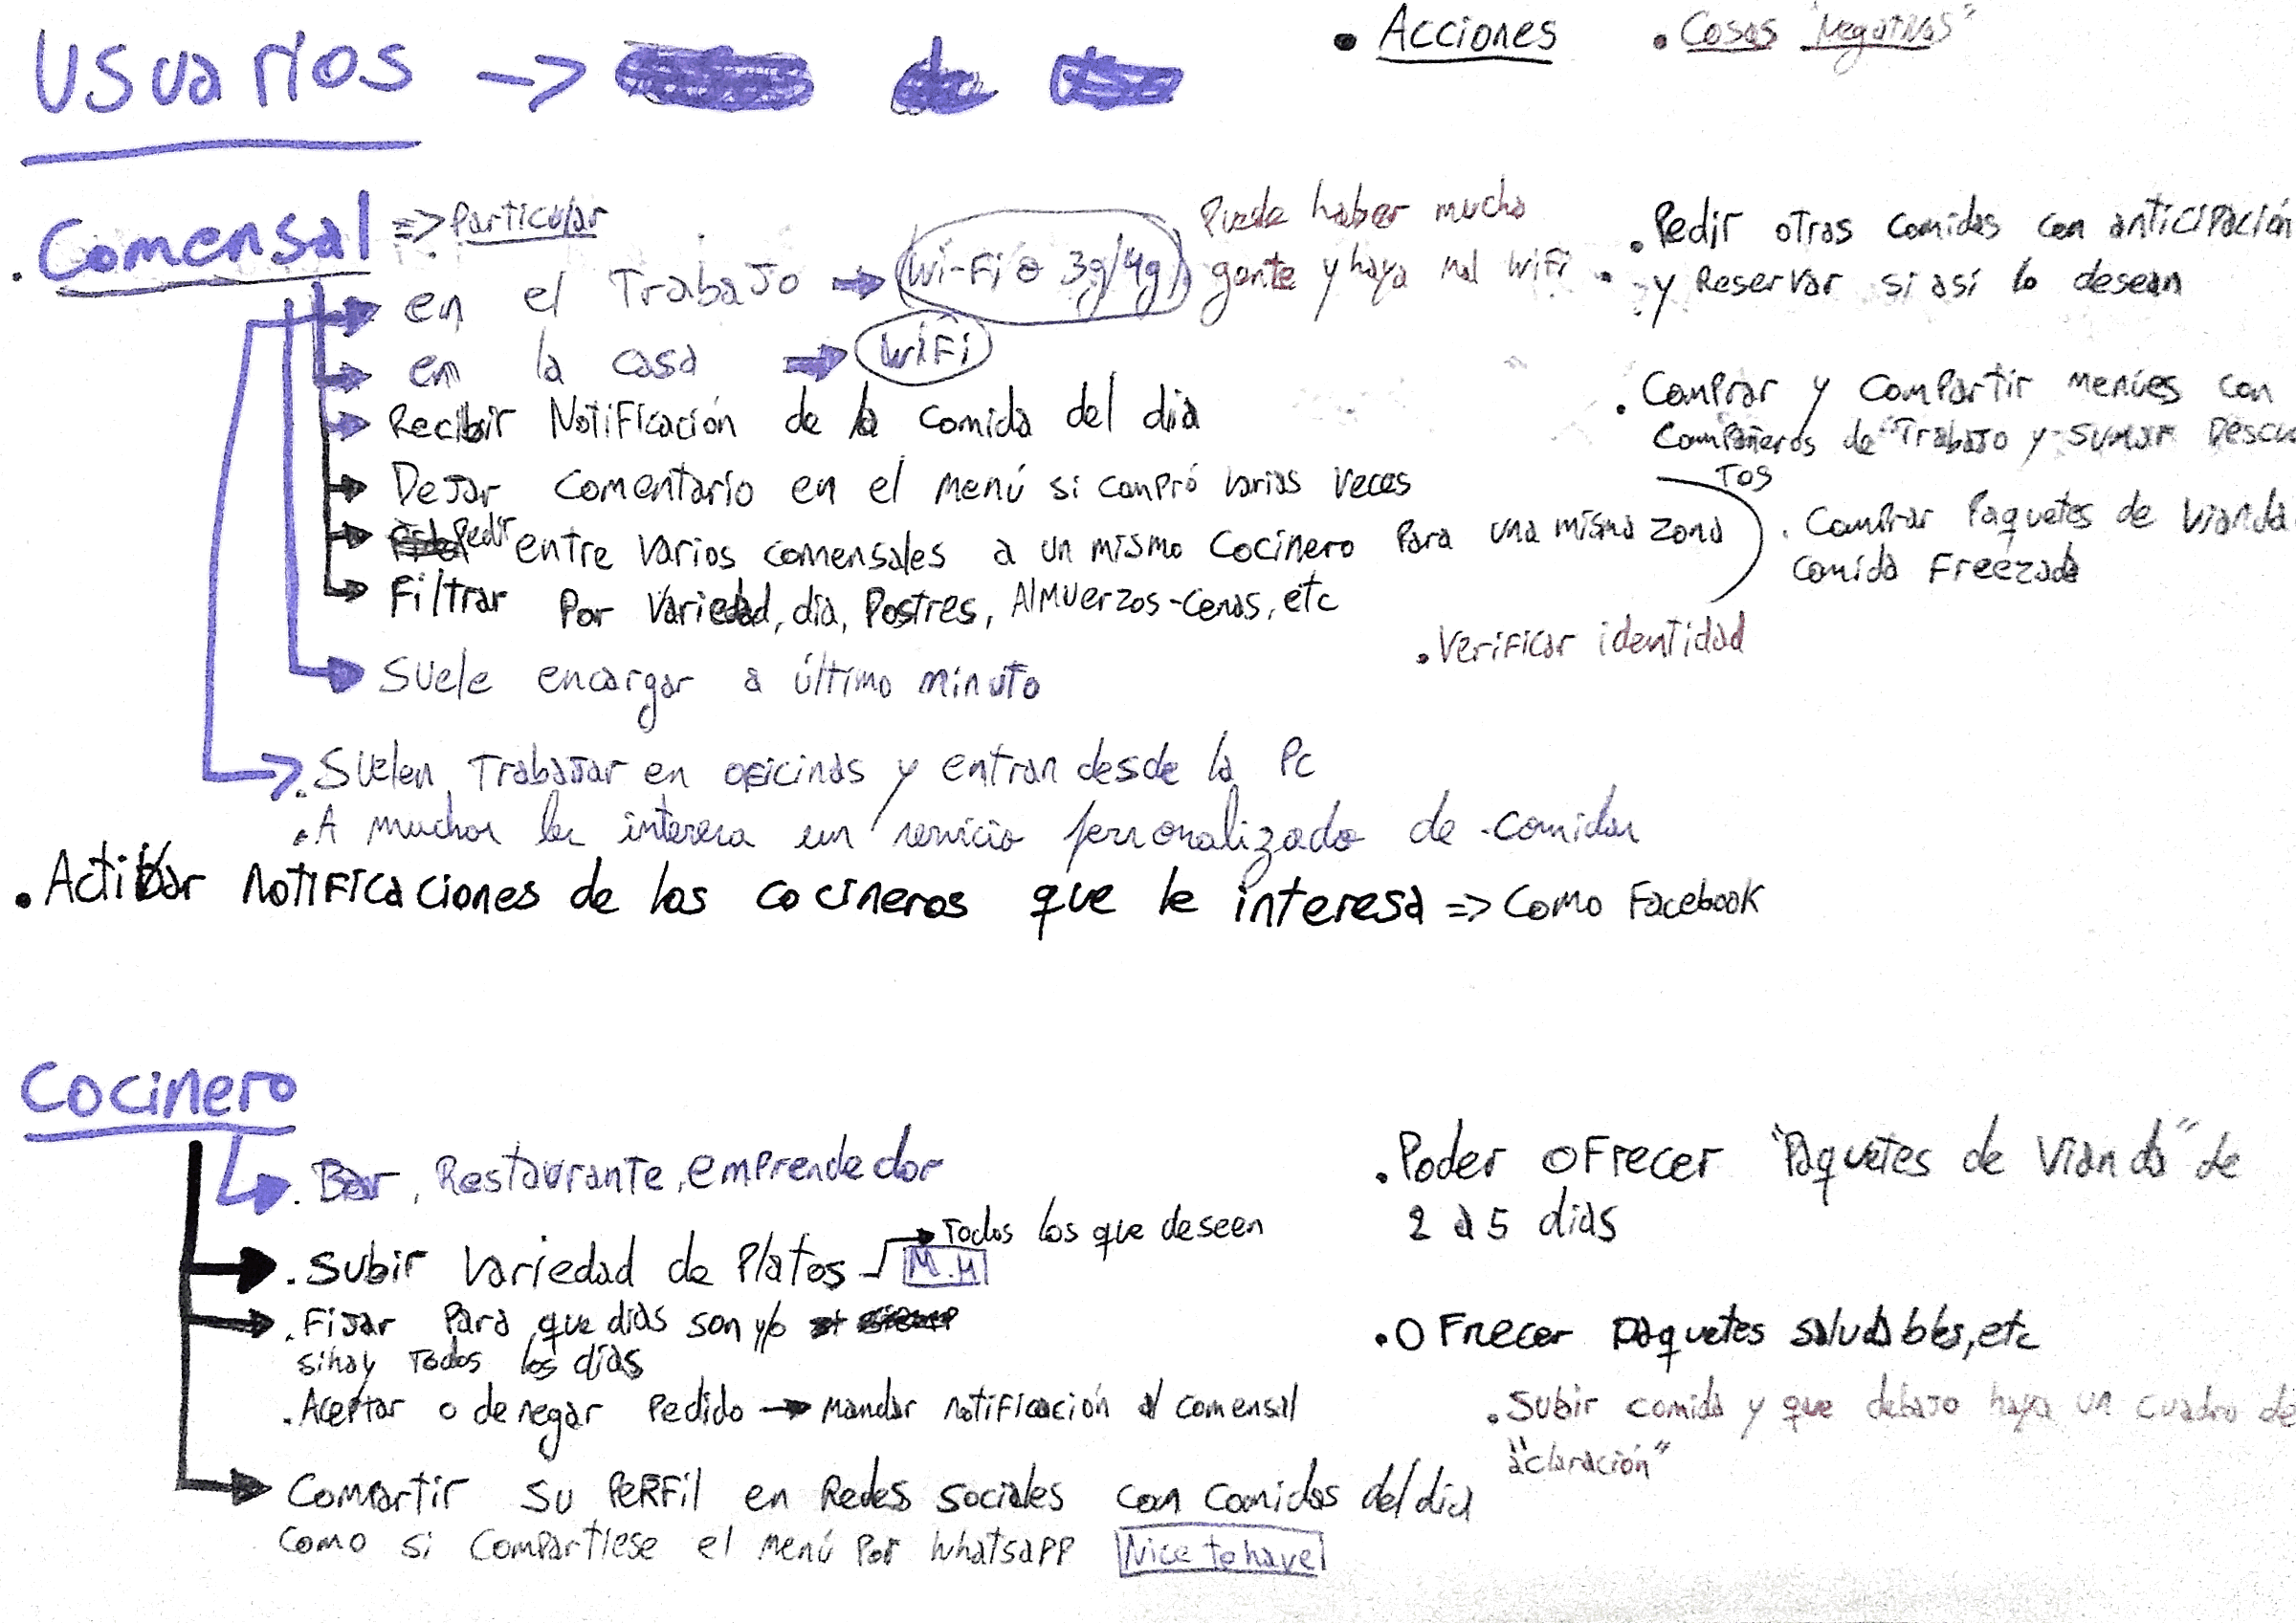 Usuarios ->
• Acciones
• Cosas "Negativas"
• Comensal => Particular
en el Trabajo → Wi-Fi o 3g/4g
Puede haber mucha
gente y haya mal WiFi
en la casa → WiFi
Recibir Notificación de la comida del día
Dejar comentario en el menú si compró varias veces
Pedir entre varios comensales a un mismo Cocinero para una misma zona
Filtrar Por Variedad, día, Postres, Almuerzos-Cenas, etc
Suele encargar a último minuto
. Suelen Trabajar en oficinas y entran desde la Pc
. A muchos les interesa un servicio personalizado de comidas
. Pedir otras comidas con anticipación
y Reservar si así lo desean
. Comprar y compartir menúes con
compañeros de Trabajo y sumar Descu
tos
. Comprar Paquetes de Vianda
comida Freezada
. Verificar identidad
. Activar notificaciones de los cocineros que le interesa => Como Facebook
Cocinero
. Bar, Restaurante, emprendedor
. Subir Variedad de Platos → Todos los que deseen
M.H
. Fijar Para que días son y/o
si hay Todos los días
. Aceptar o denegar Pedido → Mandar notificación al comensal
Compartir su PERFil en Redes sociales con Comidas del día
como si compartiese el menú por Whatsapp Nice to have
. Poder oFrecer "Paquetes de Vianda" de
2 a 5 días
. OFrecer paquetes saludables, etc
. Subir comida y que debajo haya un cuadro de
"aclaración"